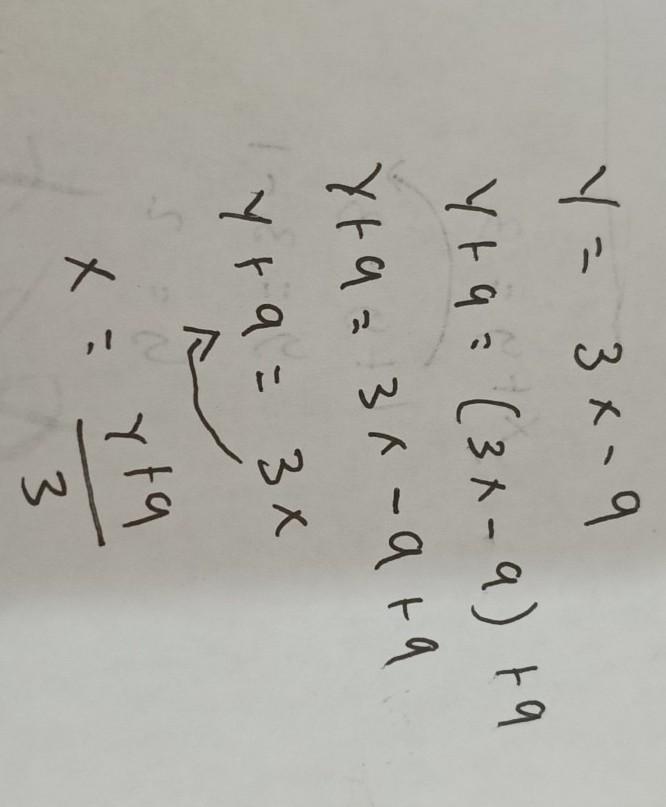 y = 3x - 9
y + 9 = (3x - 9) + 9
y + 9 = 3x - 9 + 9
y + 9 = 3x
x = \frac{y + 9}{3}